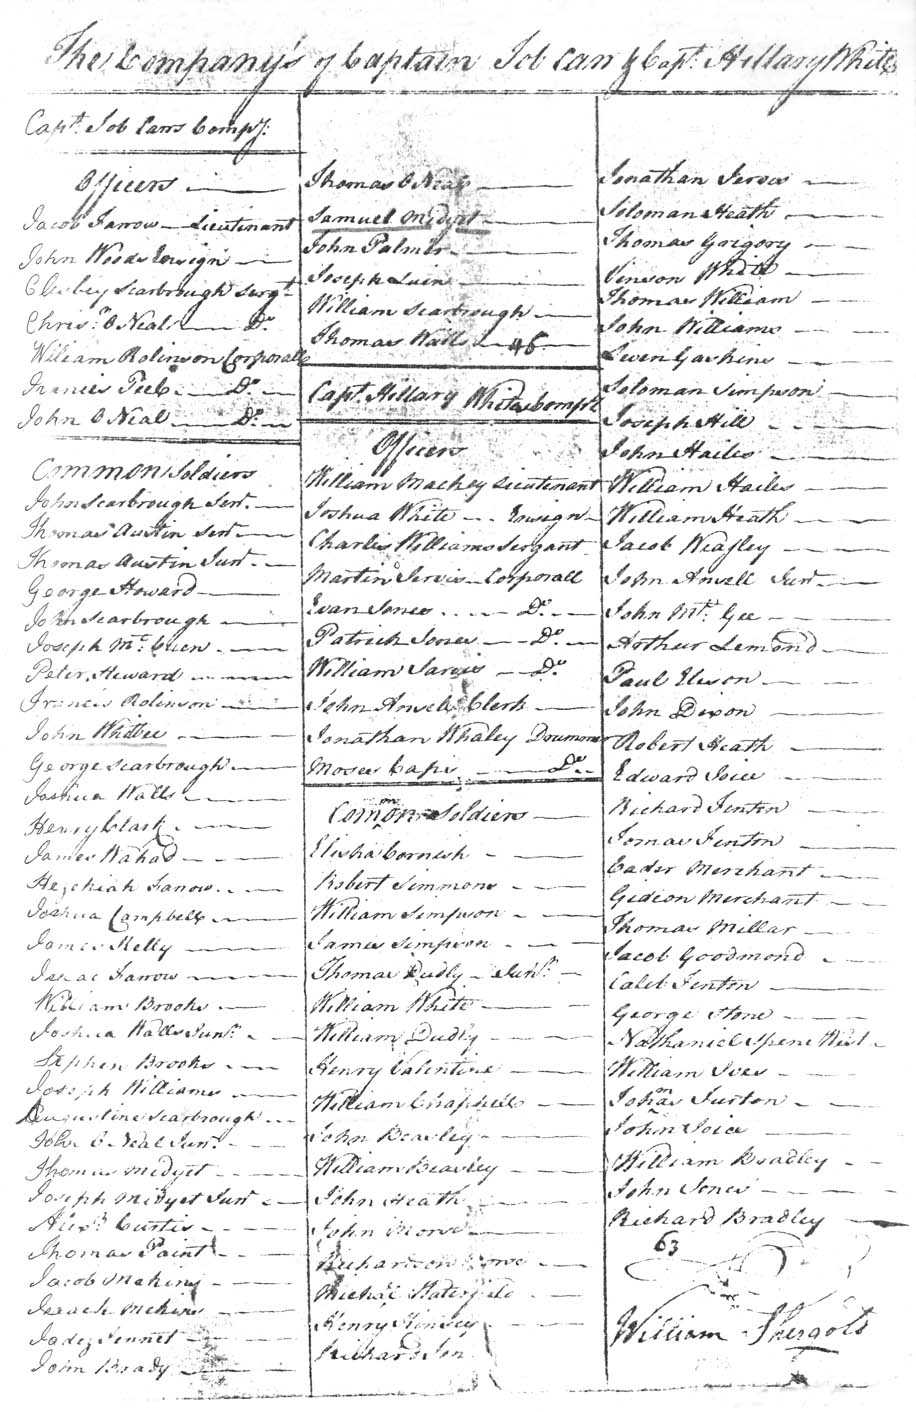 The Company's of Captain Job Carr & Capt. Hillary White
Capt. Job Carrs Compy:
Officers
Jacob Farrow Lieutenant
John Woods Ensign
Scarbrough Sergt
Chris.r O Neal Do
William Robinson Corporall
Francis Peel Do
John O Neal Do
Common Soldiers
John Scarbrough Senr.
Thomas Austin Senr
Thomas Austin Junr.
George Howard
John Scarbrough
Joseph Mc. Cuen
Peter Howard
Francis Robinson
John Whidbee
George Scarbrough
Joshua Walls
Henry Clark
James Wahab
Hezekiah Farrow
Joshua Campbell
James Kelly
Isaac Farrow
William Brooks
Joshua Walls Junr.
Stephen Brooks
Joseph Williams
Augustine Scarbrough
John O Neal Junr.
Thomas Midyet
Joseph Midyet Junr
Alexr Curtis
Thomas Paint
Jacob Mekins
Mekins
Jennet
John Brady
Thomas O Neal
Samuel Midyet
John Palmer
Joseph
William Scarbrough
Thomas Wall 46
Capt. Hillary Whites Compy
Officers
William Mackey Lieutenant
Joshua White Ensign
Charles Williams Sergant
Martin Jervis Corporall
Evan Jones Do
Patrick Jones Do
William Jarvis Do
John Ansel Clerk
Jonathan Whaley Drummer
Moses Caps Do
Common Soldiers
Elisha Cornish
Robert Simmons
William Simpson
James Simpson
Thomas Dudly Junr.
William White
William Dudly
Henry Valentine
William Chappell
John Beasley
William Beasley
John Heath
John Morse
Richardson
Michael
Henry Kinsey
Richard
Jonathan Jervis
Soloman Heath
Thomas Grigory
Vinson White
Thomas William
John Williams
Liven Gaskins
Soloman Simpson
Joseph Hill
John Hailes
William Hailes
William Heath
Jacob Weafley
John Ansell Junr
John Mc. Gee
Arthur Lemond
Paul Elison
John Dixon
Robert Heath
Edward Joice
Richard Fenton
Tomas Fenton
Cader Merchant
Gideon Merchant
Thomas Millar
Jacob Goodmond
Caleb Fenton
George Stone
Nathaniel Spene West
William Ives
Thomas Surton
John Joice
William Bradley
John Jones
Richard Bradley
63
William Shergold